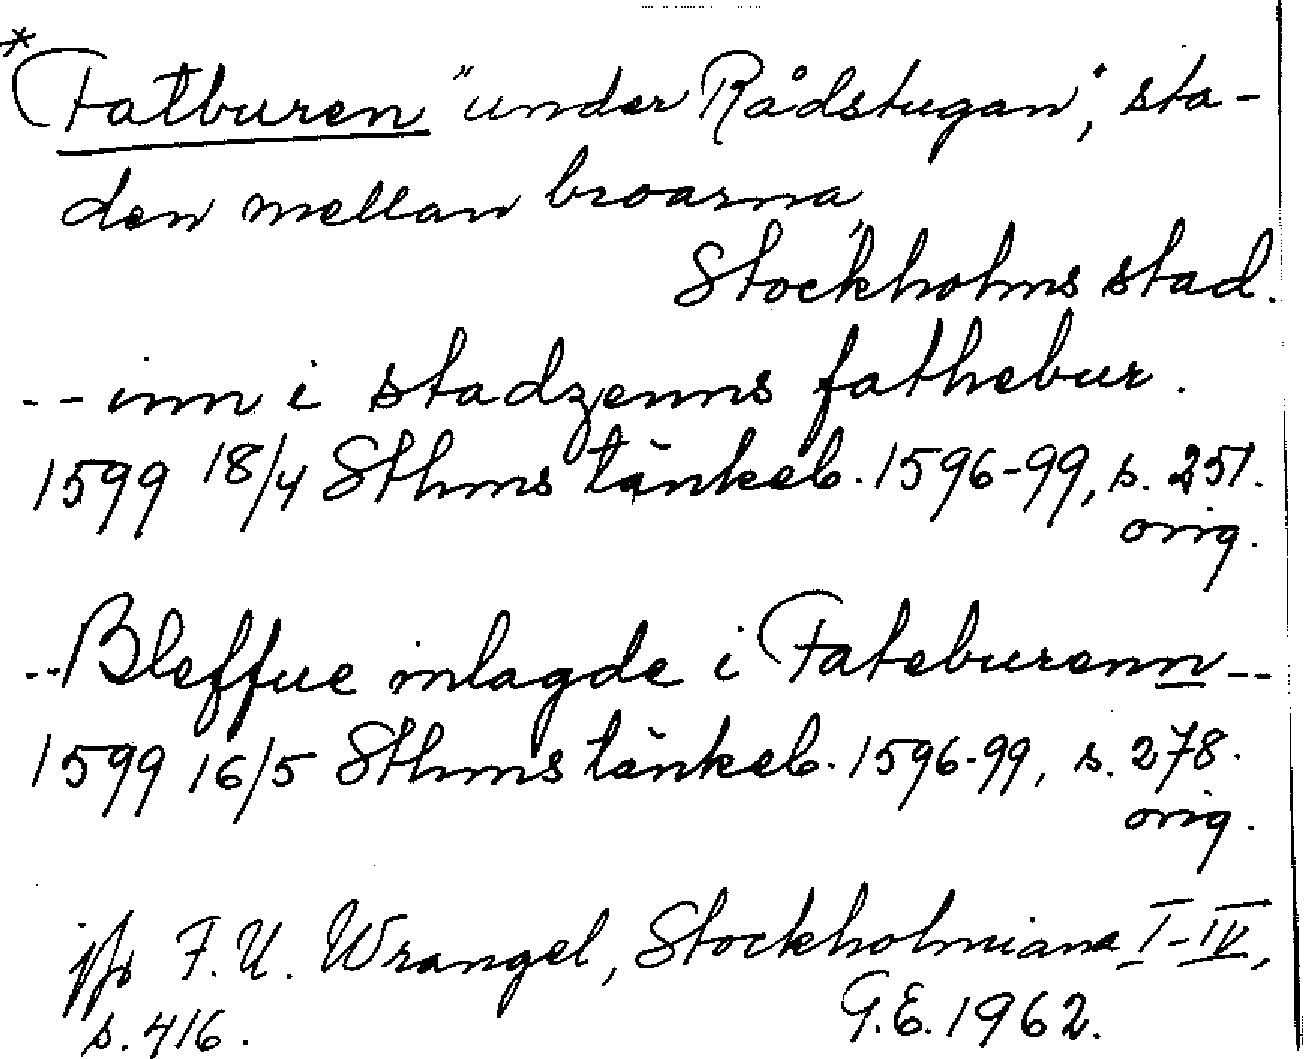 *Fatburen "under Rådstugan", sta-
den mellan broarna
Stockholms stad.
-- inn i stadzenns fathebur.
1599 18/4 Sthms tänkeb. 1596-99, s. 251.
orig.
-- Bleffue inlagde i Fateburenn --
1599 16/5 Sthms tänkeb. 1596-99, s. 278.
orig.
jfr F.U. Wrangel, Stockholmiana I-IV,
s. 416.
G.E. 1962.